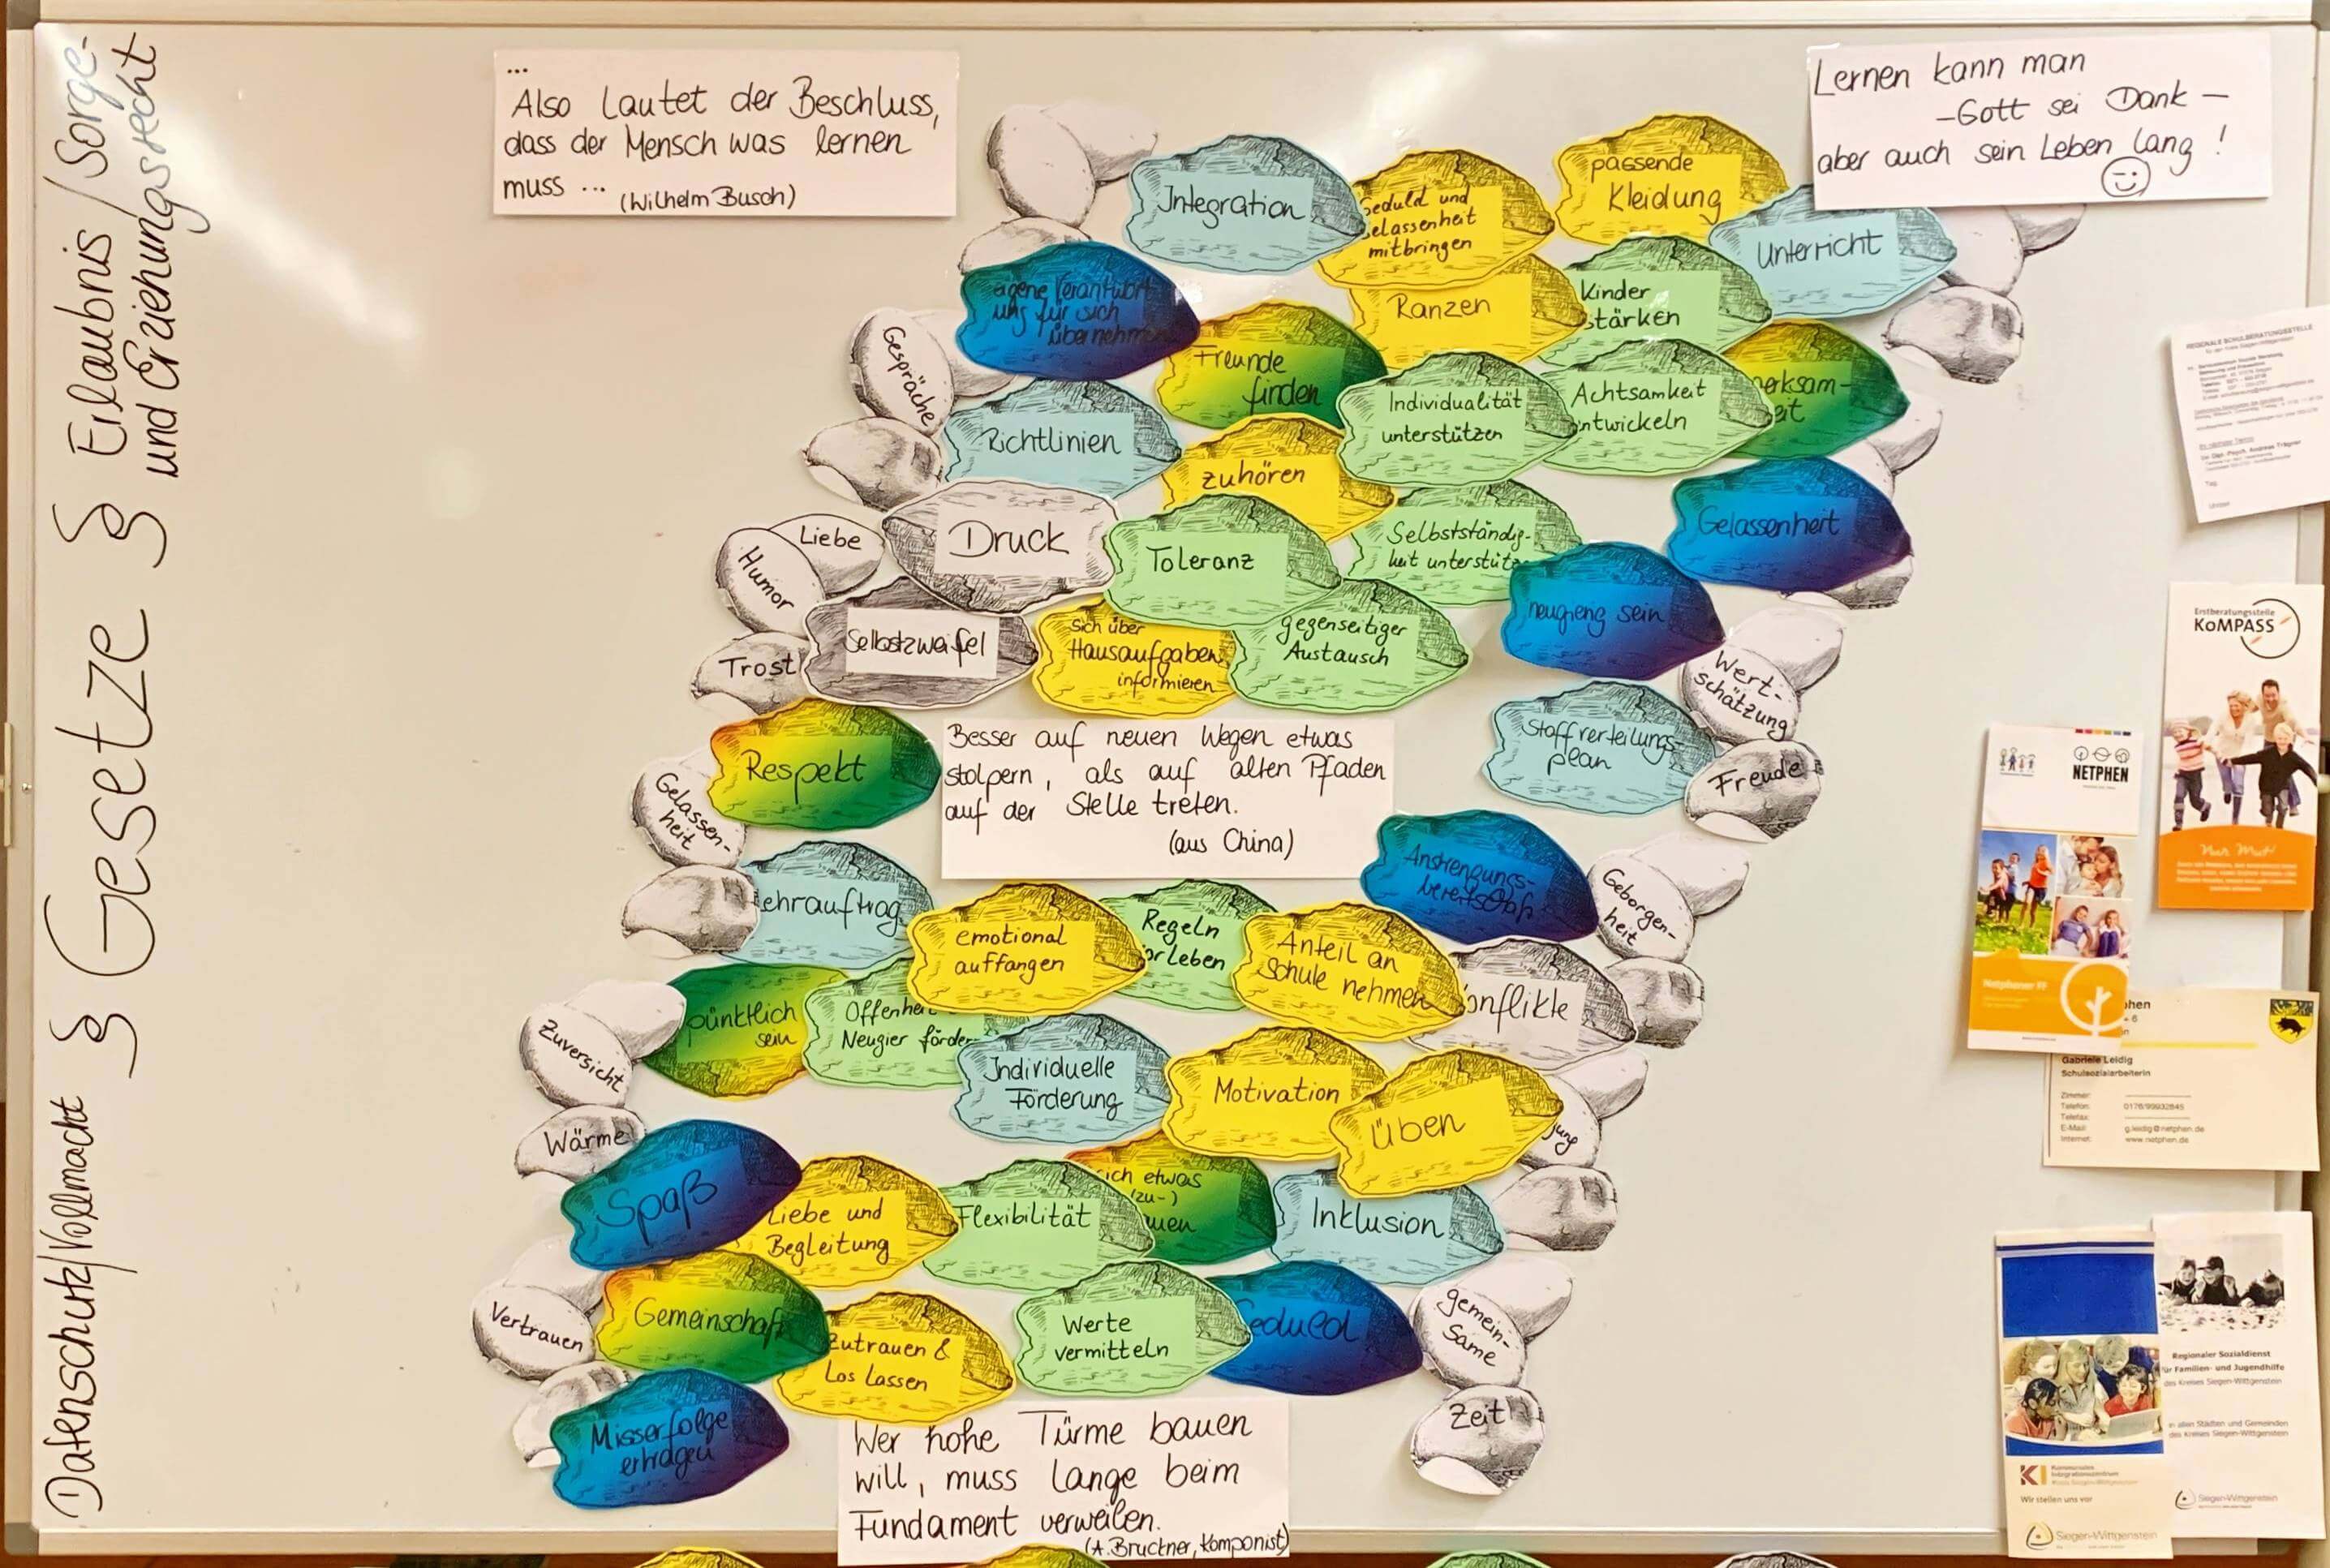 Datenschutz/Vollmacht § Gesetze § Erlaubnis/Sorge-
und Erziehungsrecht
...
Also lautet der Beschluss,
dass der Mensch was lernen
muss ... (Wilhelm Busch)
Lernen kann man
-Gott sei Dank-
aber auch sein Leben lang!
Integration
eduld und
elassenheit
mitbringen
passende
Kleidung
Unterricht
eigene Verantwort
ung für sich
übernehmen
Ranzen
Kinder
stärken
Gespräche
Freunde
finden
Individualität
unterstützen
Achtsamkeit
entwickeln
erksam-
eit
Richtlinien
zuhören
Liebe
Humor
Druck
Toleranz
Selbstständig-
keit unterstütz
Gelassenheit
neugierig sein
Trost
Selbstzweifel
Sich über
Hausaufgaben
informieren
gegenseitiger
Austausch
Wert-
schätzung
Respekt
Besser auf neuen Wegen etwas
stolpern, als auf alten Pfaden
auf der Stelle treten.
(aus China)
Stoffverteilungs-
plan
Freude
Gelassen-
heit
ehrauftrag
emotional
auffangen
Regeln
orleben
Anteil an
Schule nehmen
Anstrengungs-
bereitschaft
Geborgen-
heit
onflikte
Zuversicht
pünktlich
sein
Offenhei
Neugier förder
Individuelle
Förderung
Motivation
üben
ung
Wärme
Spaß
Liebe und
Begleitung
Flexibilität
ich etwas
(zu-)
uen
Inklusion
Vertrauen
Gemeinschaft
Zutrauen &
Los lassen
Werte
vermitteln
eduld
gemein-
same
Zeit
Misserfolge
ertragen
Wer hohe Türme bauen
will, muss lange beim
Fundament verweilen.
(A. Bruckner, Komponist)
REGIONALE SCHULBERATUNGSSTELLE
Erstberatungsstelle
KoMPASS
Nur Mut
NETPHEN
Netphener
hen
6
Gabriele Leidig
Schulsozialarbeiterin
Zimmer:
Telefon: 0176/99932845
Telefax:
E-Mail: g.leidig@netphen.de
Internet: www.netphen.de
Regionaler Sozialdienst
für Familien- und Jugendhilfe
des Kreises Siegen-Wittgenstein
in allen Städten und Gemeinden
des Kreises Siegen-Wittgenstein
Siegen-Wittgenstein
KI Kommunales
Integrationszentrum
Kreis Siegen-Wittgenstein
Wir stellen uns vor
Siegen-Wittgenstein